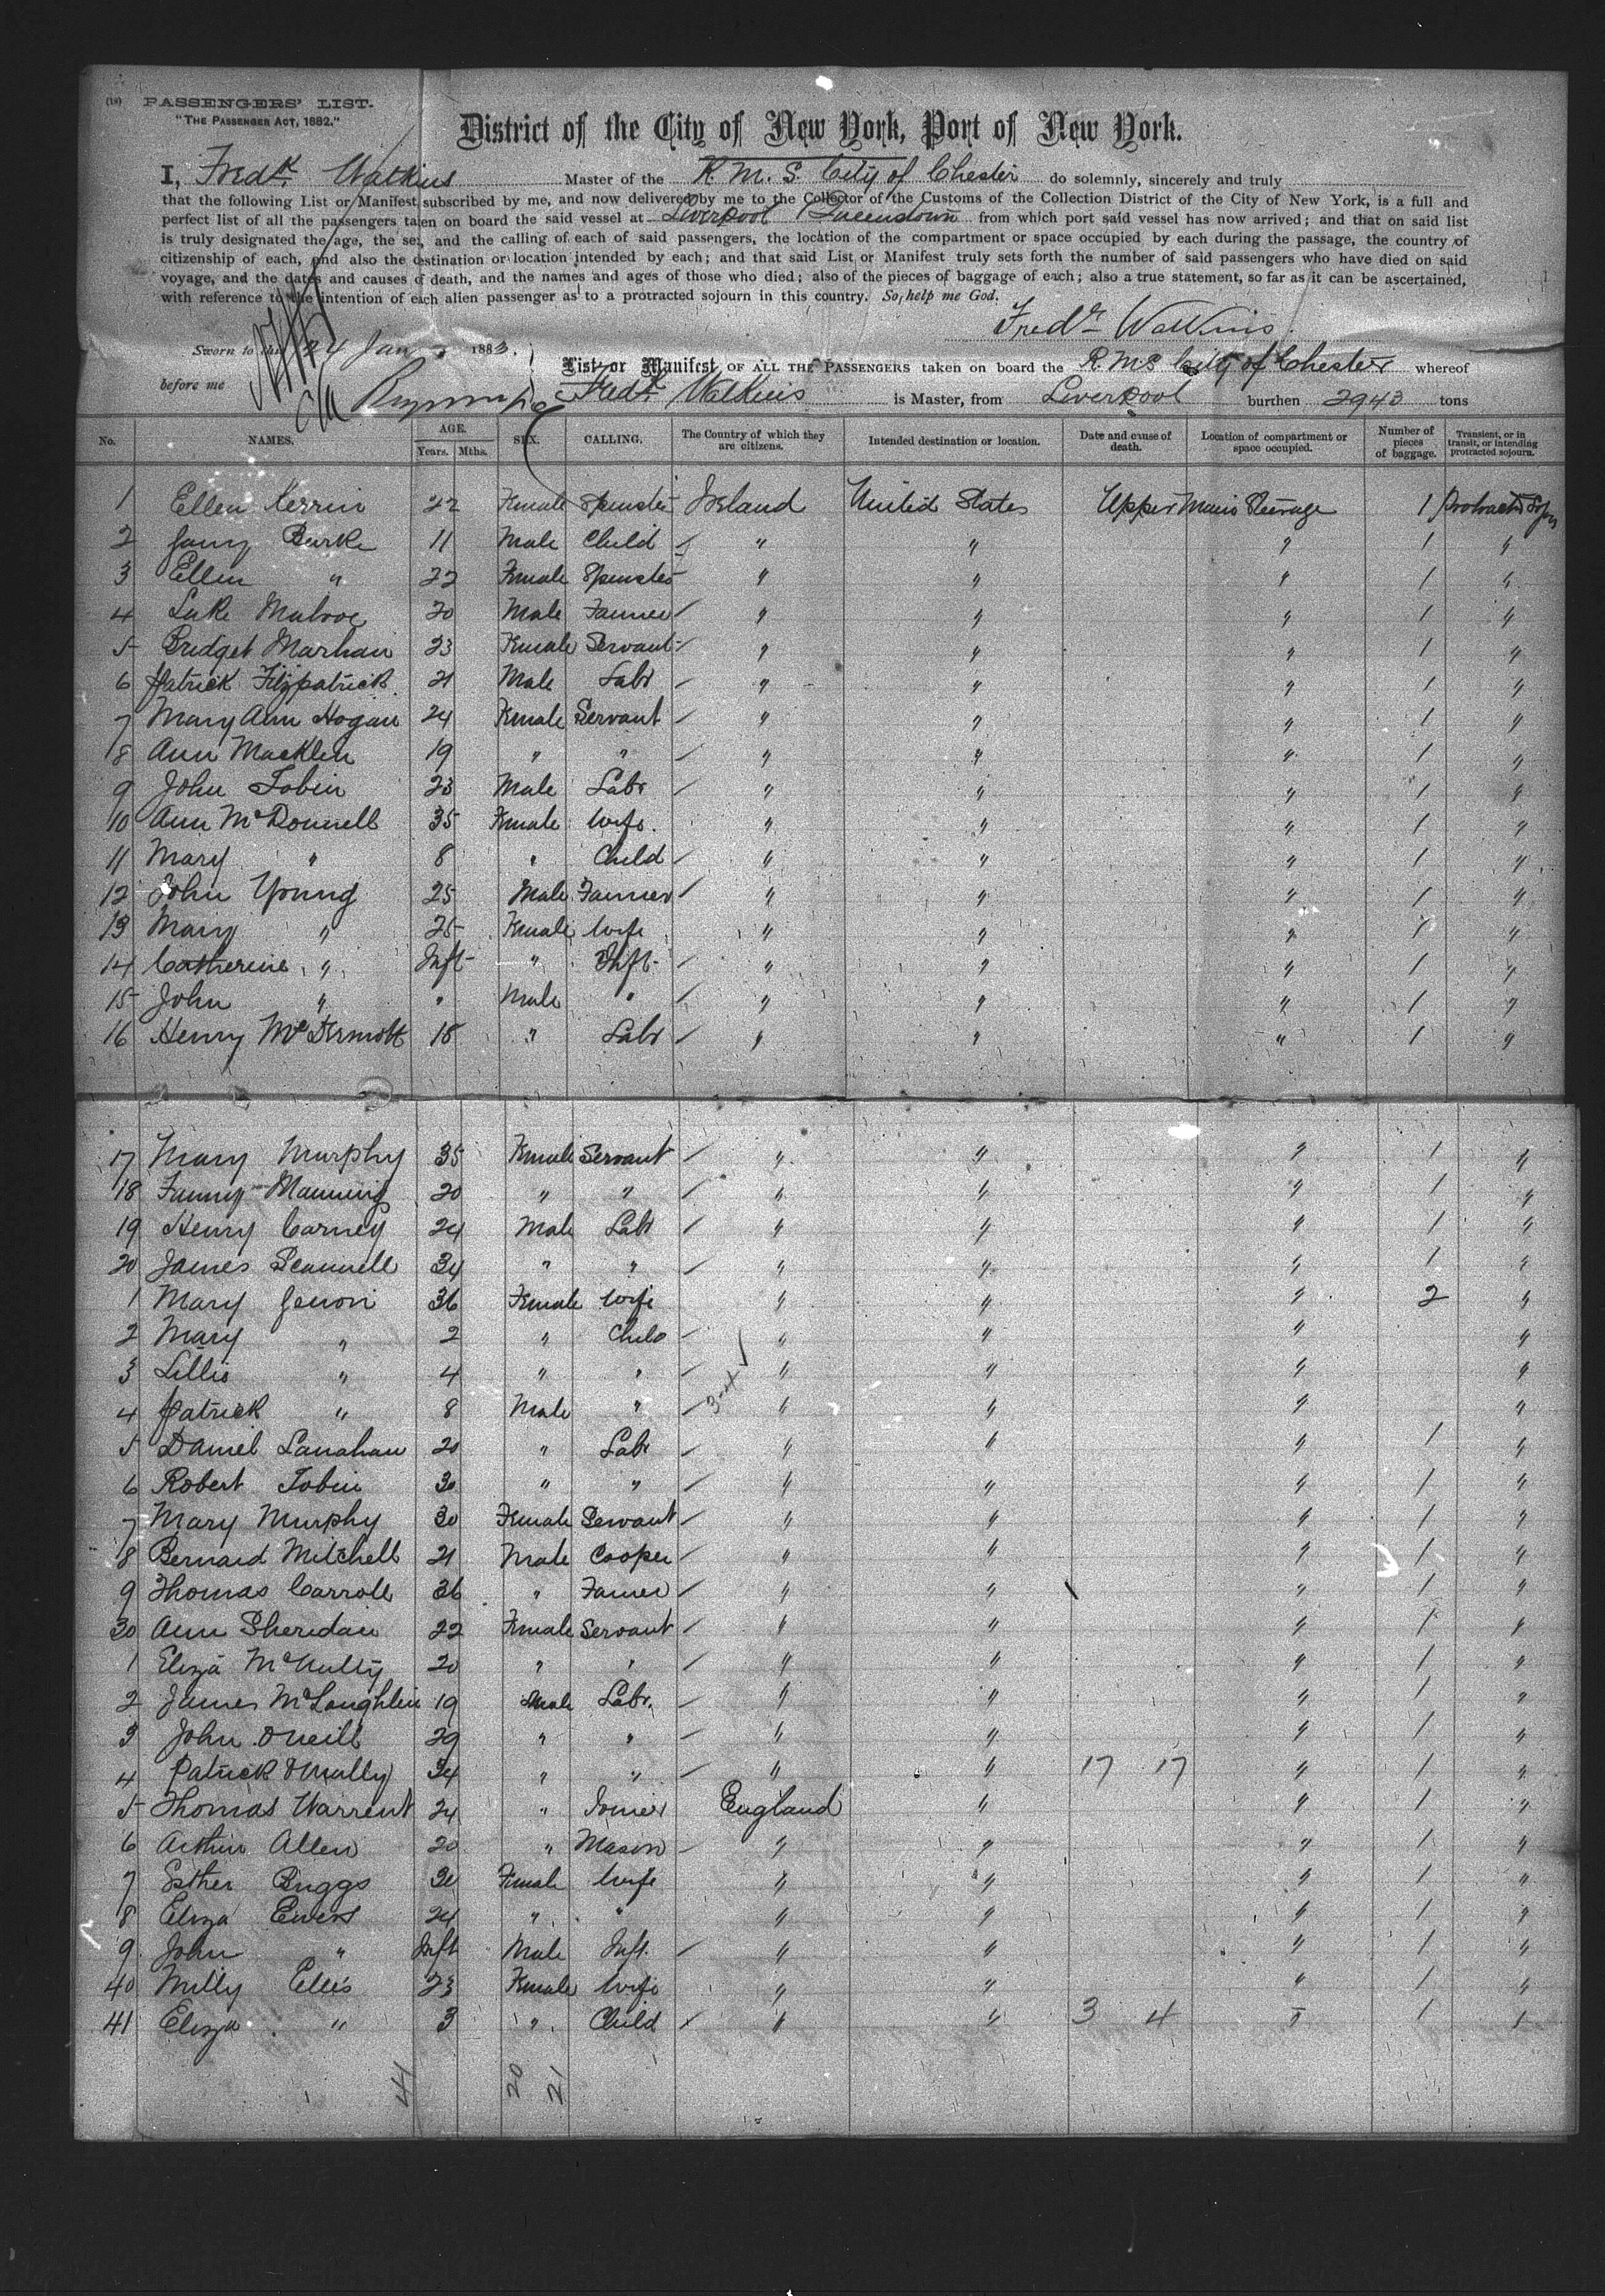 (19) PASSENGERS' LIST.
"THE PASSENGER ACT, 1882."
District of the City of New York, Port of New York.
I, Fredk. Watkins Master of the R.M.S. City of Chester do solemnly, sincerely and truly
that the following List or Manifest subscribed by me, and now delivered by me to the Collector of the Customs of the Collection District of the City of New York, is a full and
perfect list of all the passengers taken on board the said vessel at Liverpool Queenstown from which port said vessel has now arrived; and that on said list
is truly designated the age, the sex, and the calling of each of said passengers, the location of the compartment or space occupied by each during the passage, the country of
citizenship of each, and also the destination or location intended by each; and that said List or Manifest truly sets forth the number of said passengers who have died on said
voyage, and the dates and causes of death, and the names and ages of those who died; also of the pieces of baggage of each; also a true statement, so far as it can be ascertained,
with reference to the intention of each alien passenger as to a protracted sojourn in this country. So help me God.
Fredk. Watkins.
Sworn to this 24 Jan 1883.
before me
List or Manifest OF ALL THE PASSENGERS taken on board the R.M.S. City of Chester whereof
Fredk. Watkins is Master, from Liverpool burthen 2943 tons
No. NAMES. AGE. Years. Mths. SEX. CALLING. The Country of which they are citizens. Intended destination or location. Date and cause of death. Location of compartment or space occupied. Number of pieces of baggage. Transient, or in transit, or intending protracted sojourn.
1 Ellen Kerrin 22 Female Spinster Ireland United States Upper Main Steerage 1 Protracted
2 Burke 11 Male Child " " " 1 "
3 Ellen " 22 Female Spinster " " " 1 "
4 Luke Mulroe 20 Male Farmer " " " 1 "
5 Bridget 23 Female Servant " " " 1 "
6 Patrick Fitzpatrick 21 Male Labr " " " 1 "
7 Mary Ann Hogan 24 Female Servant " " " 1 "
8 Ann Macklin 19 " " " " " 1 "
9 John Tobin 23 Male Labr " " " 1 "
10 Ann McDonnell 35 Female Wife. " " " 1 "
11 Mary " 8 " Child " " " 1 "
12 John Young 25 Male Farmer " " " 1 "
13 Mary " 25 Female Wife " " " 1 "
14 Catherine " Inft " Inft " " " 1 "
15 John " " Male " " " " 1 "
16 Henry McDermott 18 " Labr " " " 1 "
17 Mary Murphy 35 Female Servant " " " 1 "
18 Fanny Manning 20 " " " " " 1 "
19 Henry Carney 24 Male Labr " " " 1 "
20 James Scannell 34 " " " " " 1 "
1 Mary 36 Female Wife " " " 2 "
2 Mary " 2 " Child " " " "
3 Lillie " 4 " " " " " "
4 Patrick " 8 Male " " " " "
5 Daniel Lanahan 20 " Labr " " " 1 "
6 Robert Tobin 30 " " " " " 1 "
7 Mary Murphy 30 Female Servant " " " 1 "
8 Bernard Mitchell 21 Male Cooper " " " 1 "
9 Thomas Carroll 36 " Farmer " " " 1 "
30 Ann Sheridan 22 Female Servant " " " 1 "
1 Eliza McNulty 20 " " " " " 1 "
2 James McLoughlin 19 Male Labr. " " " 1 "
3 John O'Neill 29 " " " " " 1 "
4 Patrick 34 " " " " 17 17 " 1 "
5 Thomas Warrent 24 " Joiner England " " 1 "
6 Arthur Allen 20 " Mason " " " 1 "
7 Esther Briggs 30 Female Wife " " " 1 "
8 Eliza Ewens 24 " " " " " 1 "
9 John " Inft Male Inft. " " " 1 "
40 Milly Ellis 23 Female Wife " " " 1 "
41 Eliza " 3 " Child " " 3 4 " 1 "
41 20 21